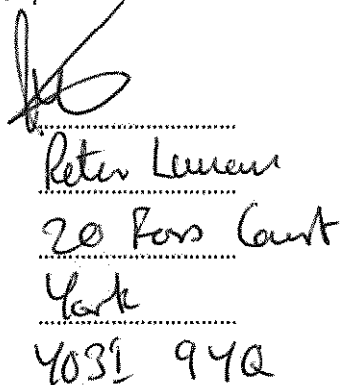 Peter
20 Foss Court
York
YO31 9YQ